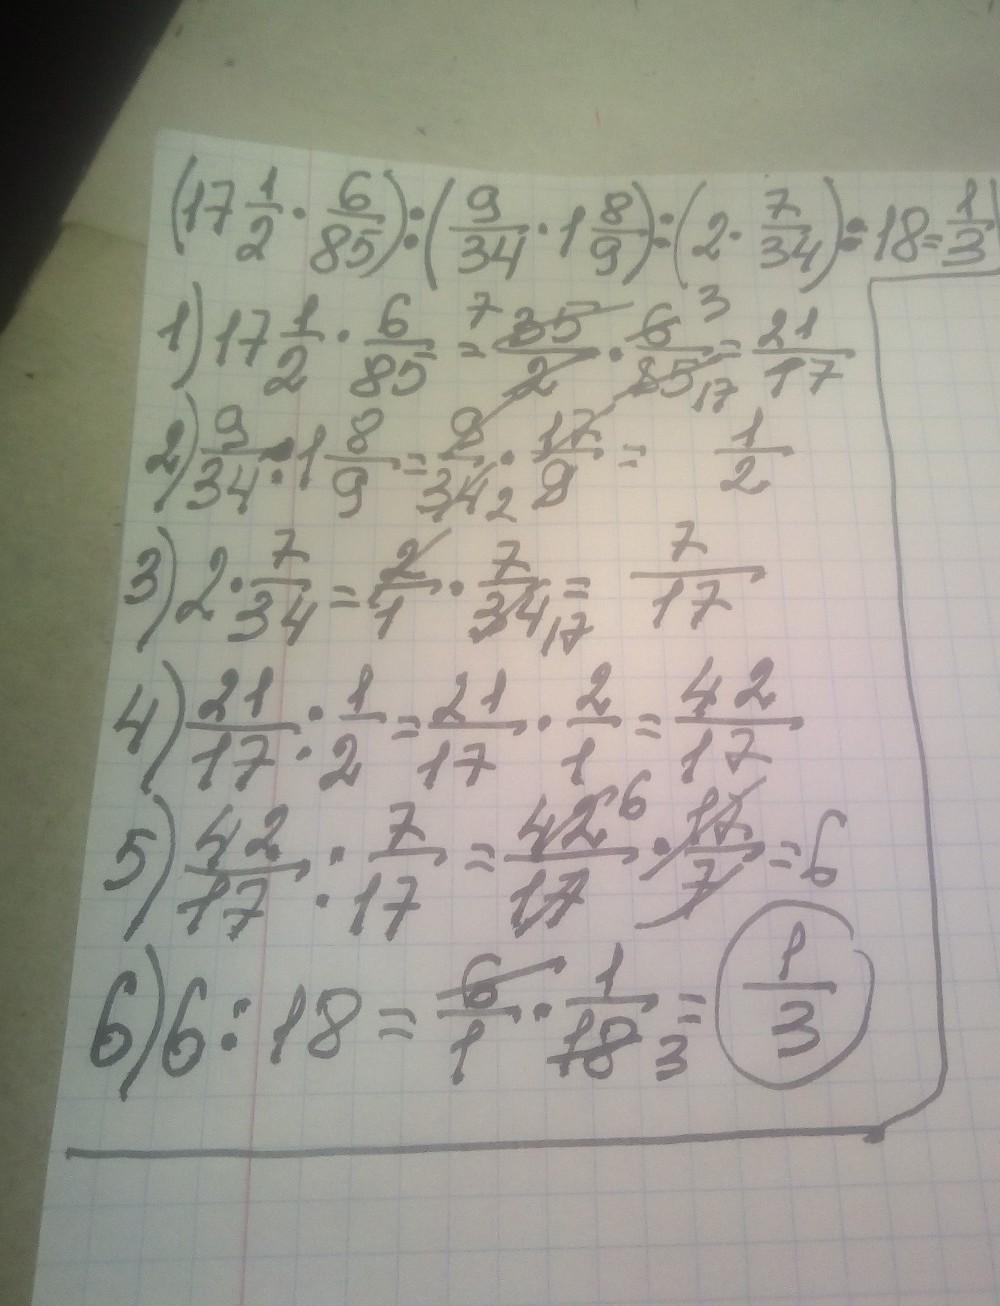 (17 1/2 · 6/85) : (9/34 · 1 8/9) : (2 · 7/34) : 18 = 1/3
1) 17 1/2 · 6/85 = 7 35/2 · 6/85 3 17 = 21/17
2) 9/34 · 1 8/9 = 9/34 2 · 17/9 = 1/2
3) 2 · 7/34 = 2/1 · 7/34 17 = 7/17
4) 21/17 : 1/2 = 21/17 · 2/1 = 42/17
5) 42/17 : 7/17 = 42/17 6 · 17/7 = 6
6) 6 : 18 = 6/1 · 1/18 3 = 1/3